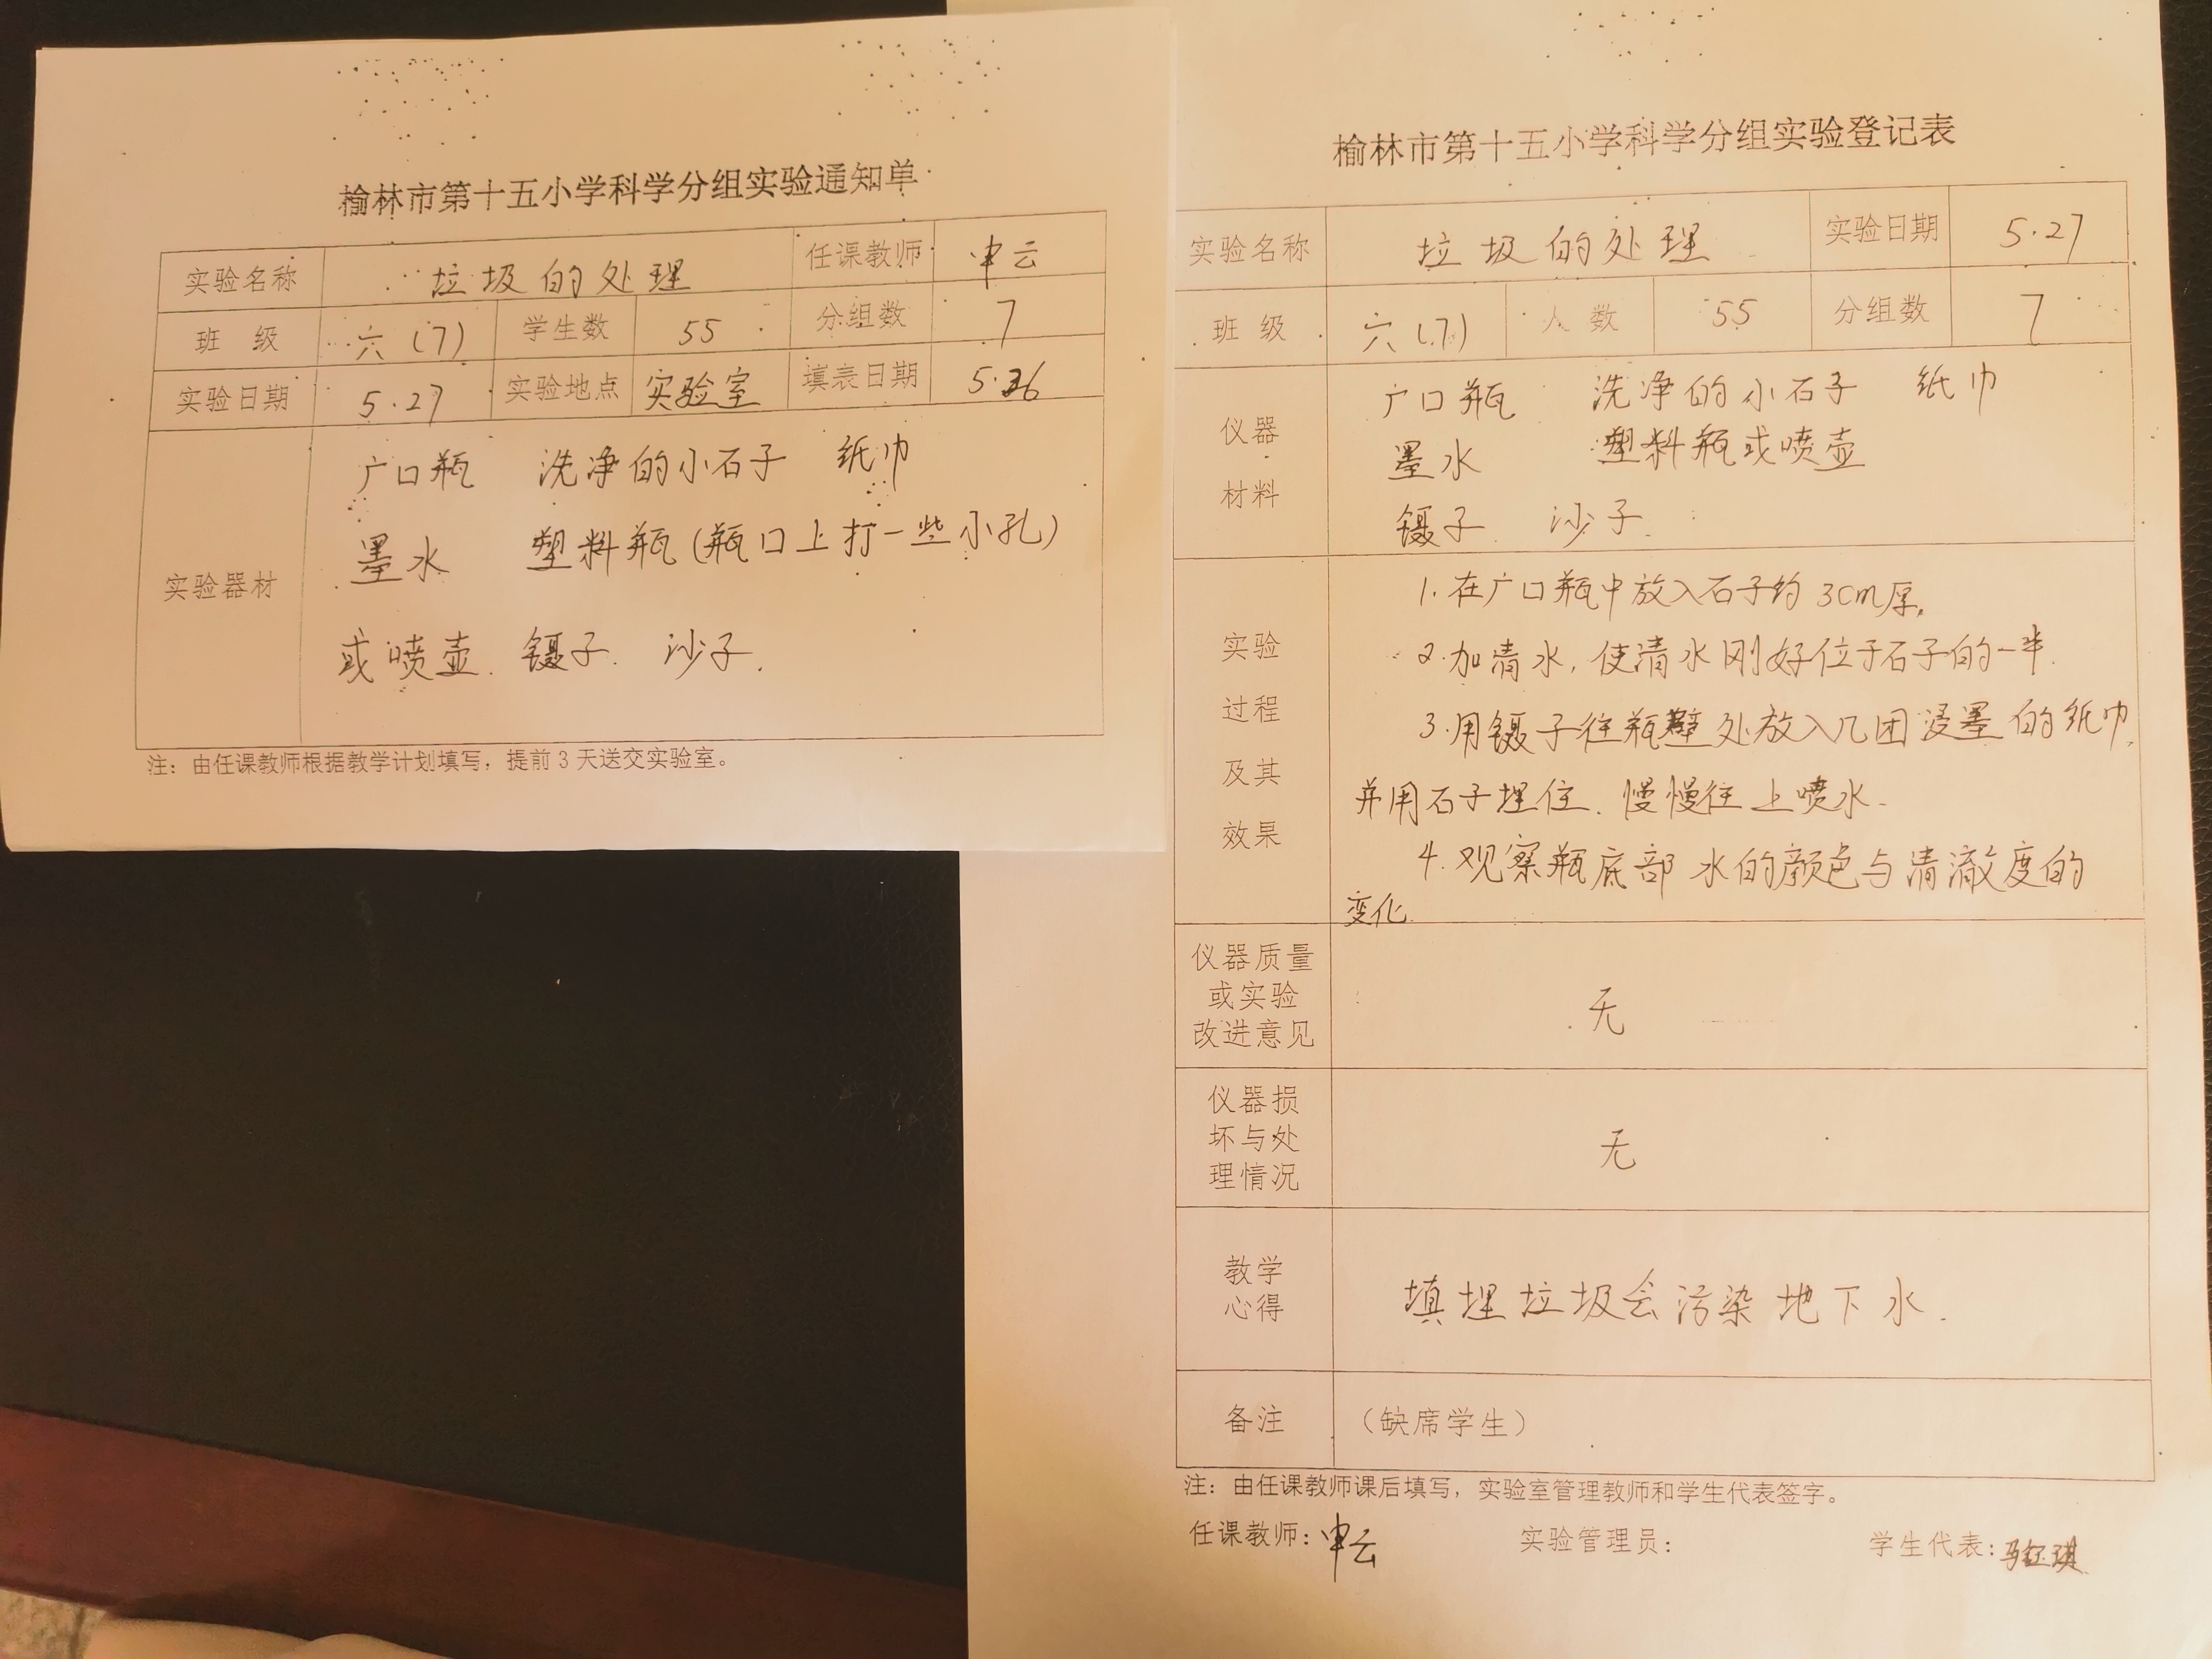 榆林市第十五小学科学分组实验通知单
实验名称 垃圾的处理 任课教师 申云
班 级 六(7) 学生数 55 分组数 7
实验日期 5.27 实验地点 实验室 填表日期 5.26
实验器材
广口瓶 洗净的小石子 纸巾
墨水 塑料瓶(瓶口上打一些小孔)
或喷壶. 镊子. 沙子.
注：由任课教师根据教学计划填写，提前3天送交实验室。
榆林市第十五小学科学分组实验登记表
实验名称 垃圾的处理 实验日期 5.27
班 级 六(7) 人 数 55 分组数 7
仪器
材料
广口瓶 洗净的小石子 纸巾
墨水 塑料瓶或喷壶
镊子 沙子.
实验
过程
及其
效果
1.在广口瓶中放入石子约3cm厚,
2.加清水,使清水刚好位于石子的一半.
3.用镊子往瓶壁处放入几团浸墨的纸巾,
并用石子埋住.慢慢往上喷水.
4.观察瓶底部水的颜色与清澈度的
变化.
仪器质量
或实验
改进意见
无
仪器损
坏与处
理情况
无
教学
心得
填埋垃圾会污染地下水.
备注 （缺席学生）
注：由任课教师课后填写，实验室管理教师和学生代表签字。
任课教师：申云 实验管理员： 学生代表：马钰琪